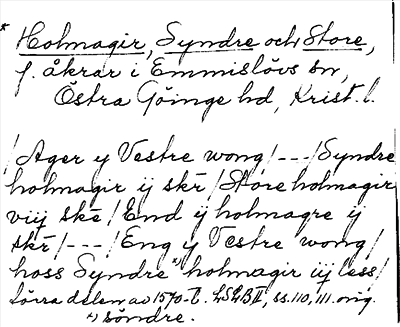 * Holmagir, Syndre och Store,
f. åkrar i Emmislövs sn,
Östra Göinge hd, Krist. l.
/Ager y Vestre wong/---/Syndre
holmagir ij skr/Store holmagir
viij skē/End ÿ holmagre ij
skr/---/Eng y Vestre wong/
hoss Syndre ⁺⁾ holmagir iij less/
förra delen av 1570-t. LSLB II, ss. 110, 111. orig.
⁺⁾ söndre.